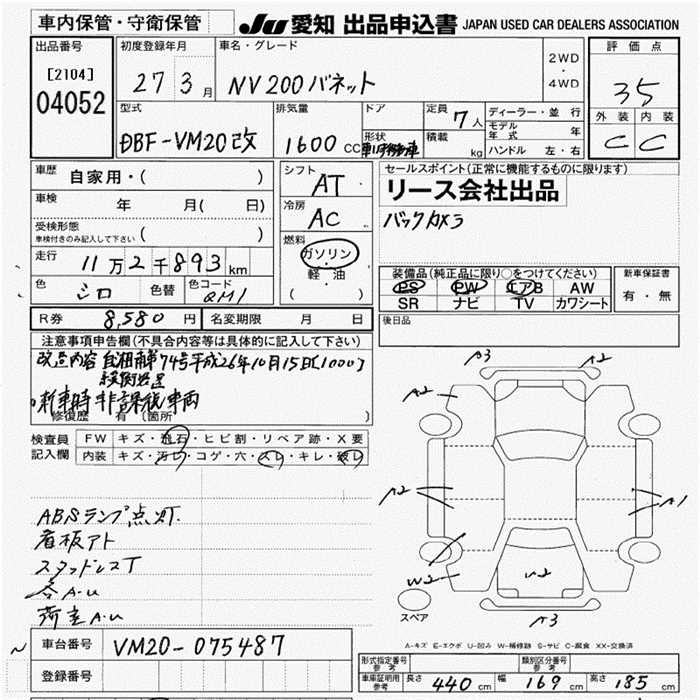 車内保管・守衛保管
JU 愛知 出品申込書 JAPAN USED CAR DEALERS ASSOCIATION
出品番号
[2104]
04052
初度登録年月
27 3月
車名・グレード
NV200バネット
2WD
・
4WD
評価点
35
外装 内装
C C
型式
DBF-VM20改
排気量
1600 CC
ドア
形状
定員
7人
積載
kg
ディーラー・並行
モデル年式 年
ハンドル 左・右
車歴
自家用・( )
車検
年 月( 日)
受検形態
車検付きのみ記入して下さい ( )
走行
11万2千893km
色
シロ
色替
色コード
QM1
シフト
AT
冷房
AC
燃料
ガソリン
・
軽・油
( )
セールスポイント(正常に機能するものに限ります)
リース会社出品
バックカメラ
装備品(純正品に限り○をつけてください)
PS PW エアB AW
SR ナビ TV カワシート
新車保証書
有・無
後日品
R券 8,580円 名変期限 月 日
注意事項申告欄(不具合内容等は具体的に記入して下さい)
改造内容 自相南第74号平成26年10月15日(1000)
新車時非課税車両
修復歴 有(箇所 )
検査員記入欄
FW キズ・飛石・ヒビ割・リペア跡・X要
内装 キズ・汚レ・コゲ・穴・スレ・キレ・破レ
ABSランプ点灯
看板アト
スタッドレスT
各A・u
荷室A・u
A3 A2
A2
A2 A1
W2 u2
A3
スペア
A-キズ E-エクボ U-凹み W-補修跡 S-サビ C-腐食 XX-交換済
車台番号 VM20-075487
登録番号
形式指定番号
参考
類別区分番号
参考
車庫証明用
参考
長さ 440cm 幅 169cm 高さ 185cm